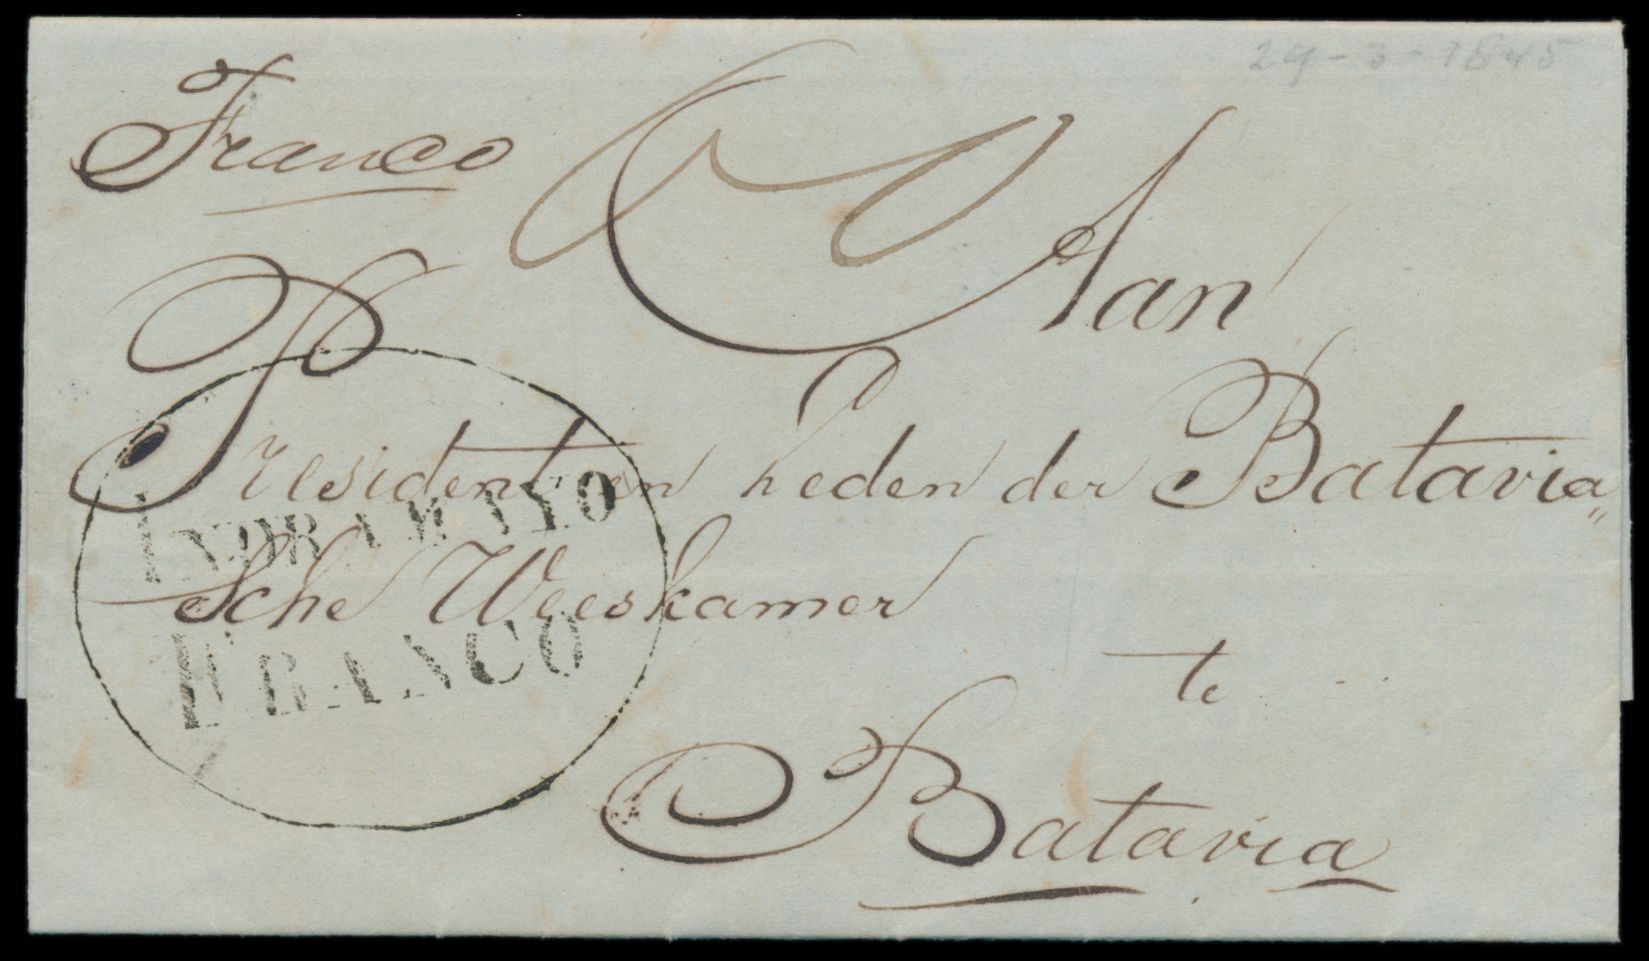 29-3-1845
Franco
Aan
President en Leden der Batavia„
sche Weeskamer
te
Batavia
INDRAMAYO
FRANCO